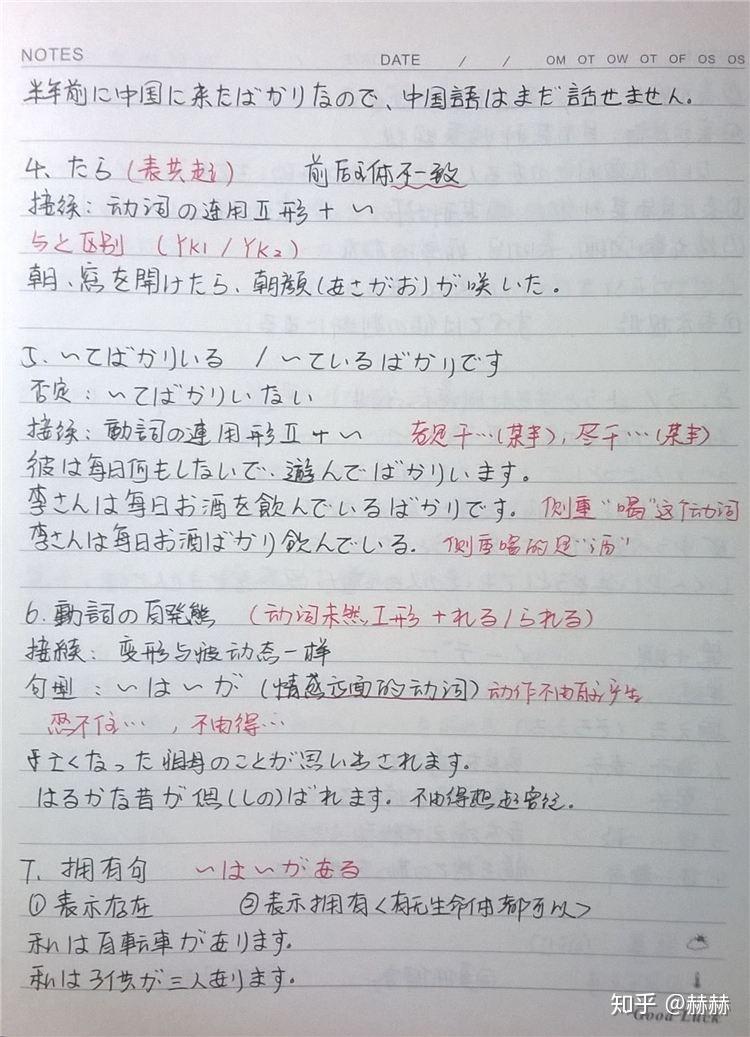 NOTES
DATE / / OM OT OW OT OF OS OS
半年前に中国に来たばかりなので、中国語はまだ話せません。
4、たら（表共起） 前后主体不一致
接続：动词の连用Ⅱ形＋〜
与と区别 （YK1 / YK2）
朝、窓を開けたら、朝顔（あさがお）が咲いた。
5、〜てばかりいる / 〜ているばかりです
否定：〜てばかりいない
接続：動詞の連用形Ⅱ＋〜 老是干…（某事），尽干…（某事）
彼は毎日何もしないで、遊んでばかりいます。
李さんは毎日お酒を飲んでいるばかりです。 侧重“喝”这个动词
李さんは毎日お酒ばかり飲んでいる. 侧重喝的是“酒”
6. 動詞の自発態 （动词未然Ⅰ形＋れる/られる）
接続：变形与被动态一样
句型：〜は〜が（情感方面的动词）动作不由自主产生
忍不住…，不由得…
亡くなった祖母のことが思い出されます。
はるかな昔が偲（しの）ばれます。不由得想起曾往。
7、拥有句 〜は〜がある
①表示存在 ②表示拥有＜有无生命体都可以＞
私は自転車があります。
私は子供が三人あります。
知乎 @赫赫
Good Luck